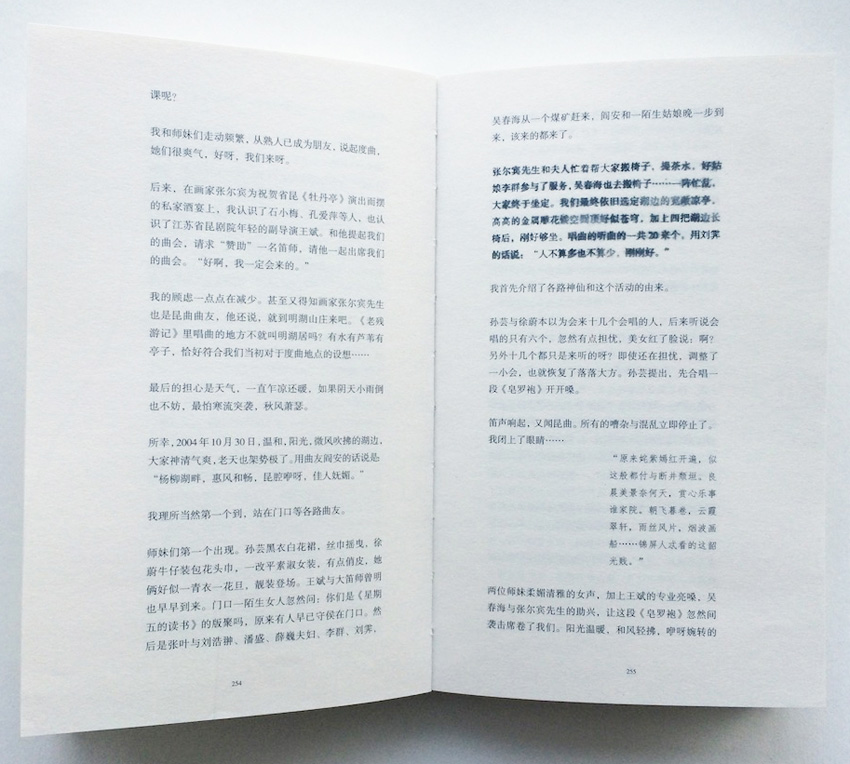 课呢？
我和师妹们走动频繁，从熟人已成为朋友，说起度曲，
她们很爽气，好呀，我们来呀。
后来，在画家张尔宾为祝贺省昆《牡丹亭》演出而摆
的私家酒宴上，我认识了石小梅、孔爱萍等人，也认
识了江苏省昆剧院年轻的副导演王斌。和他提起我们
的曲会，请求“赞助”一名笛师，请他一起出席我们
的曲会。“好啊，我一定会来的。”
我的顾虑一点点在减少。甚至又得知画家张尔宾先生
也是昆曲曲友，他还说，就到明湖山庄来吧。《老残
游记》里唱曲的地方不就叫明湖居吗？有水有芦苇有
亭子，恰好符合我们当初对于度曲地点的设想……
最后的担心是天气，一直乍凉还暖，如果阴天小雨倒
也不妨，最怕寒流突袭，秋风萧瑟。
所幸，2004年10月30日，温和，阳光，微风吹拂的湖边，
大家神清气爽，老天也架势极了。用曲友阎安的话说是：
“杨柳湖畔，惠风和畅，昆腔咿呀，佳人妩媚。”
我理所当然第一个到，站在门口等各路曲友。
师妹们第一个出现。孙芸黑衣白花裙，丝巾摇曳，徐
蔚牛仔装包花头巾，一改平素淑女装，有点俏皮，她
俩好似一青衣一花旦，靓装登场。王斌与大笛师曾明
也早早到来。门口一陌生女人忽然问：你们是《星期
五的读书》的版聚吗，原来有人早已守侯在门口。然
后是张叶与刘浩翀、潘盛、薛巍夫妇、李群、刘霁，
254
吴春海从一个煤矿赶来，阎安和一陌生姑娘晚一步到
来，该来的都来了。
张尔宾先生和夫人忙着帮大家搬椅子、提茶水。好姑
娘李群参与了服务，吴春海也去搬椅子……一阵忙乱，
大家终于坐定。我们最终依旧选定湖边的宽敞凉亭。
高高的金碉雕花镂空圆顶好似苍穹，加上四把湖边长
椅后，刚好够坐。唱曲的听曲的一共20来个。用刘霁
的话说：“人不算多也不算少，刚刚好。”
我首先介绍了各路神仙和这个活动的由来。
孙芸与徐蔚本以为会来十几个会唱的人，后来听说会
唱的只有六个，忽然有点担忧，美女红了脸说：啊？
另外十几个都只是来听的呀？即使还在担忧，调整了
一小会，也就恢复了落落大方。孙芸提出，先合唱一
段《皂罗袍》开开嗓。
笛声响起，又闻昆曲。所有的嘈杂与混乱立即停止了。
我闭上了眼睛……
“原来姹紫嫣红开遍，似
这般都付与断井颓垣，良
晨美景奈何天，赏心乐事
谁家院。朝飞暮卷，云霞
翠轩，雨丝风片，烟波画
船……锦屏人忒看的这韶
光贱。”
两位师妹柔媚清雅的女声，加上王斌的专业亮嗓，吴
春海与张尔宾先生的助兴，让这段《皂罗袍》忽然间
袭击席卷了我们。阳光温暖、和风轻拂，咿呀婉转的
255